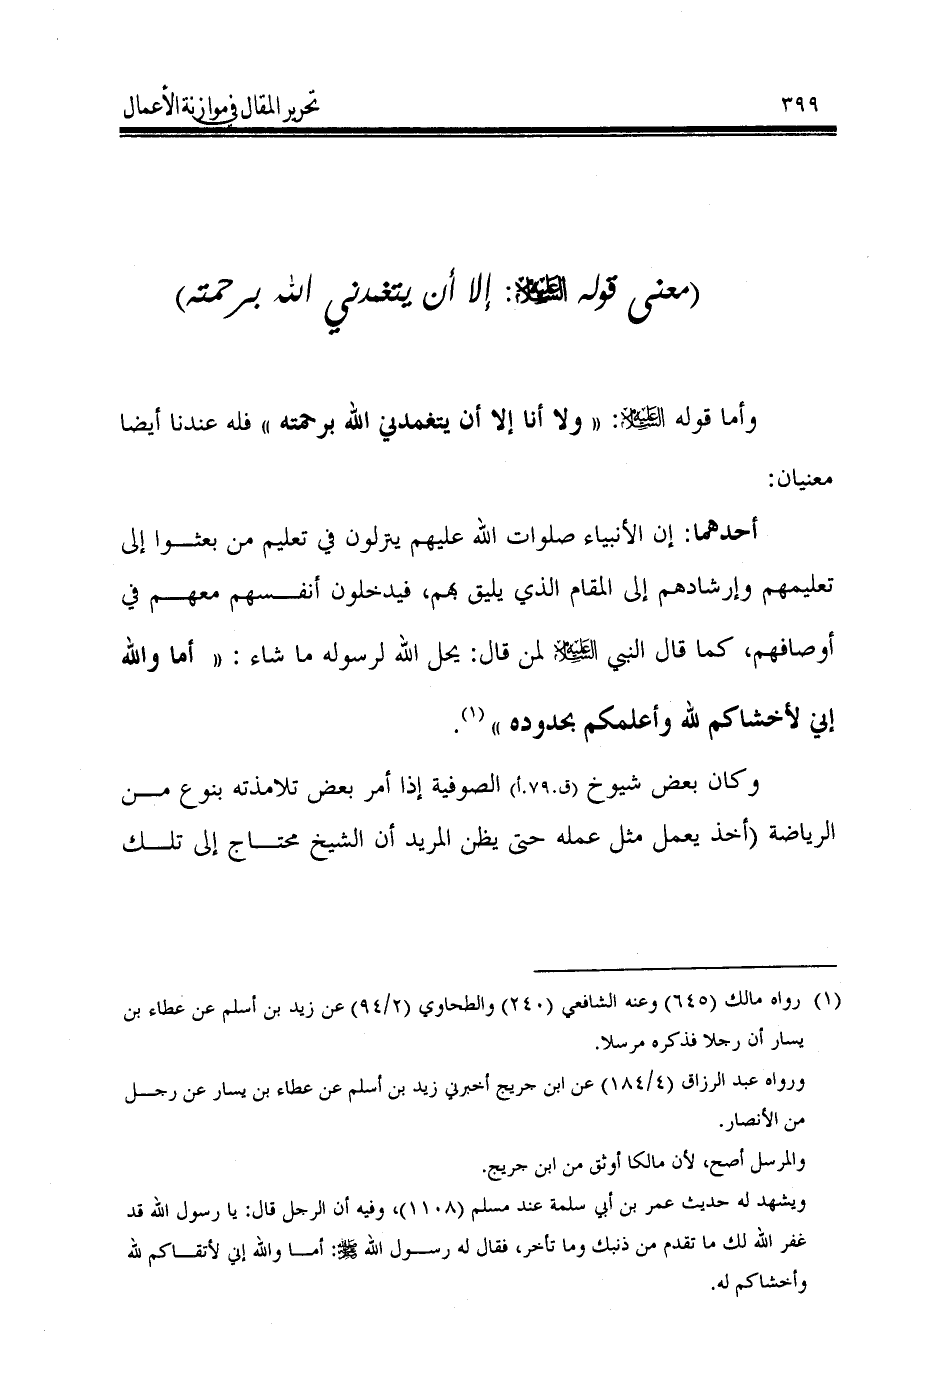 ٣٩٩ تحرير المقال في موازنة الأعمال
(معنى قوله العليه السلام: إلا أن يتغمدني الله برحمته)
وأما قوله عليه السلام: « ولا أنا إلا أن يتغمدني الله برحمته » فله عندنا أيضا
معنيان:
أحدهما: إن الأنبياء صلوات الله عليهم ينزلون في تعليم من بعثــوا إلى
تعليمهم وإرشادهم إلى المقام الذي يليق بهم، فيدخلون أنفــسهم معهــم في
أوصافهم، كما قال النبي عليه السلام لمن قال: يحل الله لرسوله ما شاء : « أما والله
إني لأخشاكم لله وأعلمكم بحدوده »(١).
وكان بعض شيوخ (ق.٧٩.أ) الصوفية إذا أمر بعض تلامذته بنوع مــن
الرياضة (أخذ يعمل مثل عمله حتى يظن المريد أن الشيخ محتــاج إلى تلــك
(١) رواه مالك (٦٤٥) وعنه الشافعي (٢٤٠) والطحاوي (٩٤/٢) عن زيد بن أسلم عن عطاء بن
يسار أن رجلا فذكره مرسلا.
ورواه عبد الرزاق (١٨٤/٤) عن ابن جريج أخبرني زيد بن أسلم عن عطاء بن يسار عن رجــل
من الأنصار.
والمرسل أصح، لأن مالكا أوثق من ابن جريج.
ويشهد له حديث عمر بن أبي سلمة عند مسلم (١١٠٨)، وفيه أن الرجل قال: يا رسول الله قد
غفر الله لك ما تقدم من ذنبك وما تأخر، فقال له رســول الله ﷺ: أمــا والله إني لأتقــاكم لله
وأخشاكم له.